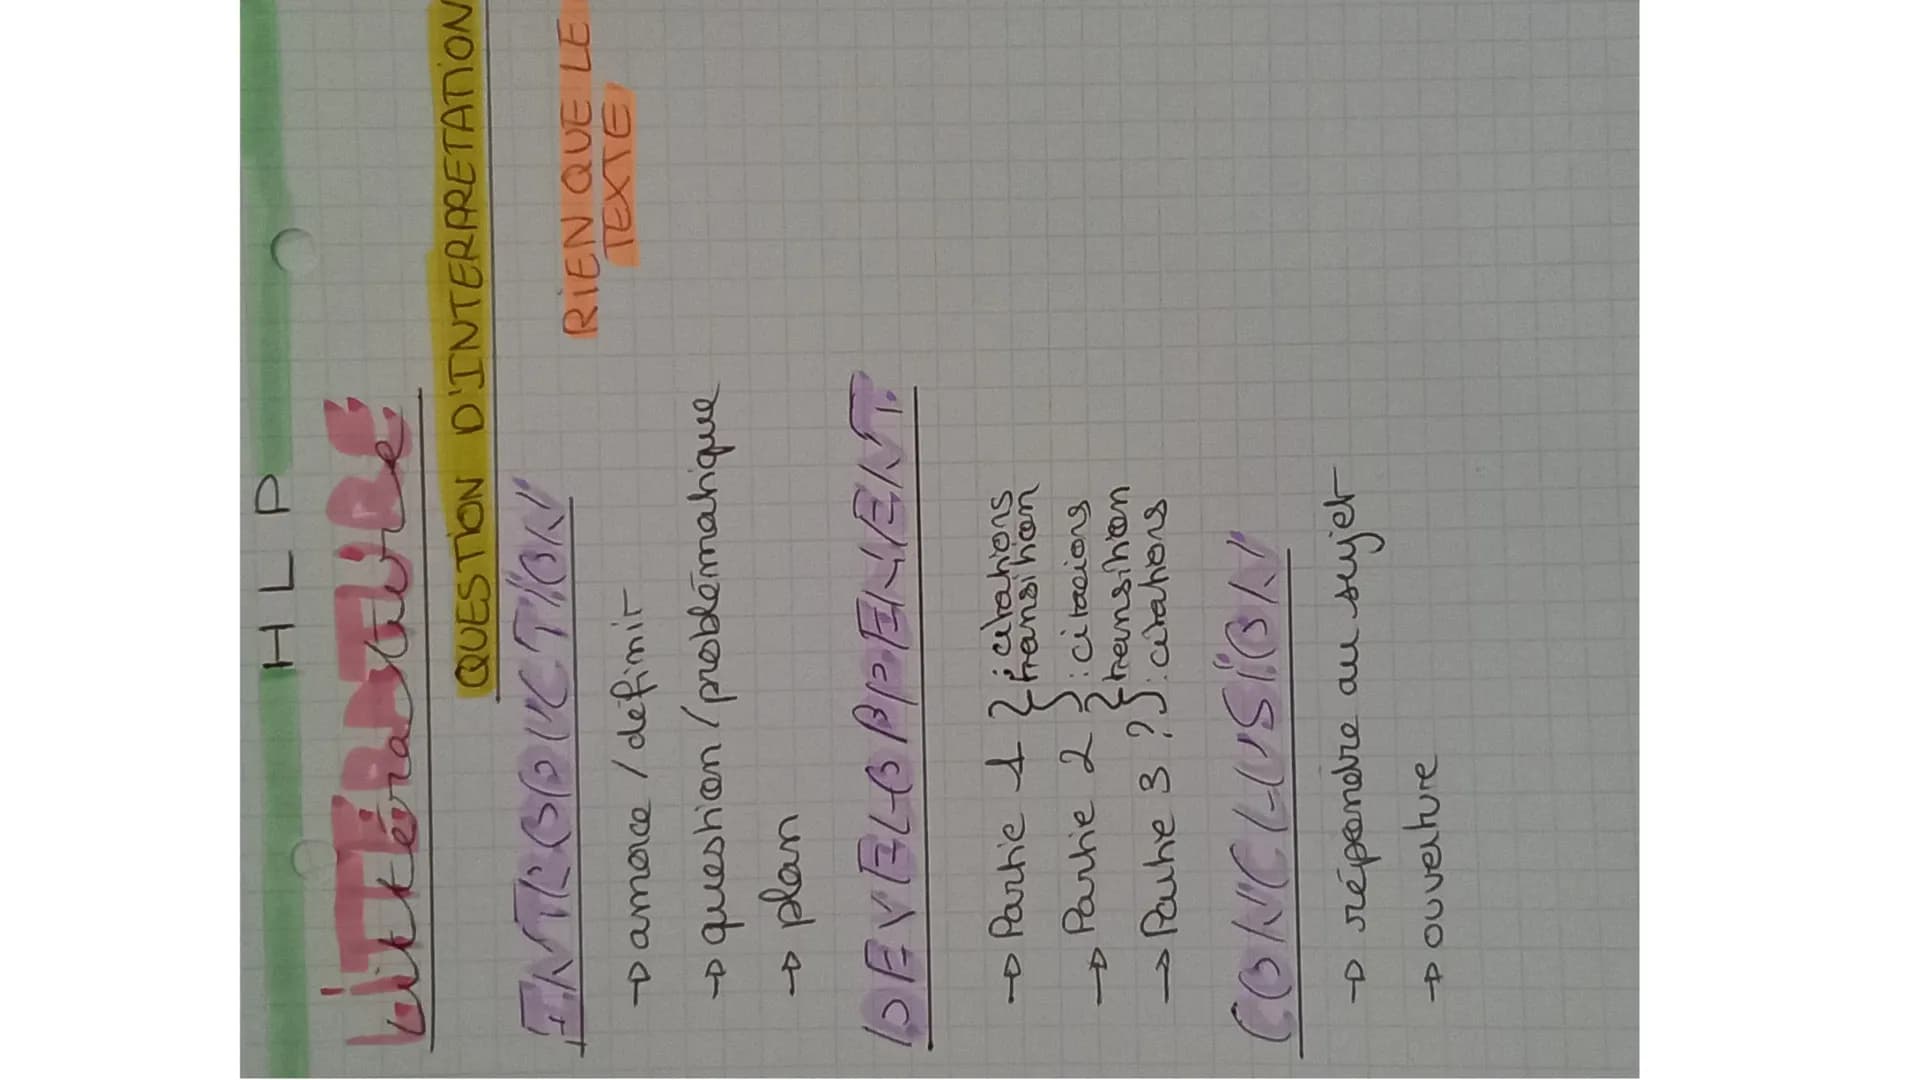 HLP
LiTTÉRATURE
Littérature
QUESTiON D'INTERPRETATiON
INTRODUCTiON
RiEN QUE LE
TEXTE
→ amorce / définit
→ question / problématique
→ plan
DEVELOPPEMENT
→ Partie 1 } : citations
transition
→ Partie 2 } : citations
transition
→ Partie 3 ? } : citations
CONCLUSiON
→ répondre au sujet
→ ouverture